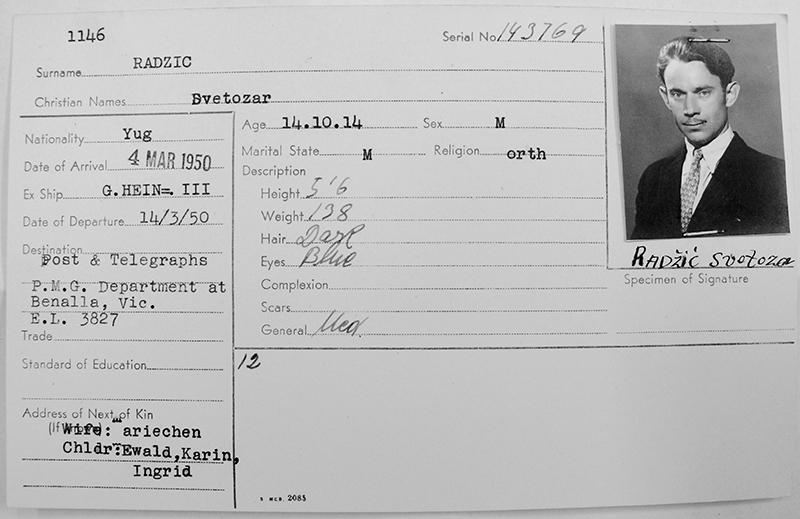 1146
Serial No. 143769
Surname RADZIC
Christian Names Svetozar
Nationality Yug
Date of Arrival 4 MAR 1950
Ex Ship G.HEIN=. III
Date of Departure 14/3/50
Destination
Post & Telegraphs
P.M.G. Department at
Benalla, Vic.
E.L. 3827
Trade
Standard of Education
Address of Next of Kin
(If
Wife: ariechen
Chldr:Ewald,Karin,
Ingrid
Age 14.10.14 Sex M
Marital State M Religion orth
Description
Height 5'6
Weight 138
Hair Dark
Eyes Blue
Complexion
Scars
General Med
12
RADŽIĆ Svetoza
Specimen of Signature
S MCB. 2085